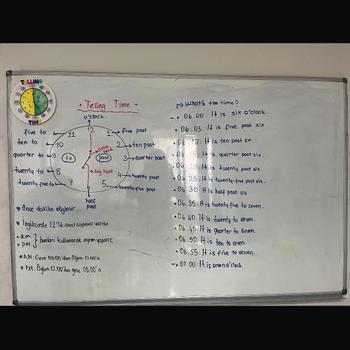 TELLING
TIME
• Telling Time •
o'clock
five to
11
12
1
five past
ten to
10
2
ten past
quarter to
9
to
past
3
quarter past
twenty to
8
big hand
4
twenty past
twenty five to
7
5
twenty-five past
half
past
* Önce dakika söylenir
* İngilizcede 12'lik saat sistemi
* a.m
* p.m
} bunları kullanarak
* A.M:
* P.M:
What's the time?
• 06.00 It is six o'clock.
• 06.05 It is five past six
It is ten past six
It is quarter past six.
It is twenty past six.
It is twenty five past six.
• 06.30 It is half past six.
• 06.35 It is twenty five to seven.
• 06.40 It is twenty to seven.
• 06.45 It is quarter to seven.
• 06.50 It is ten to seven.
• 06.55 It is five to seven.
07.00 It is seven o'clock.